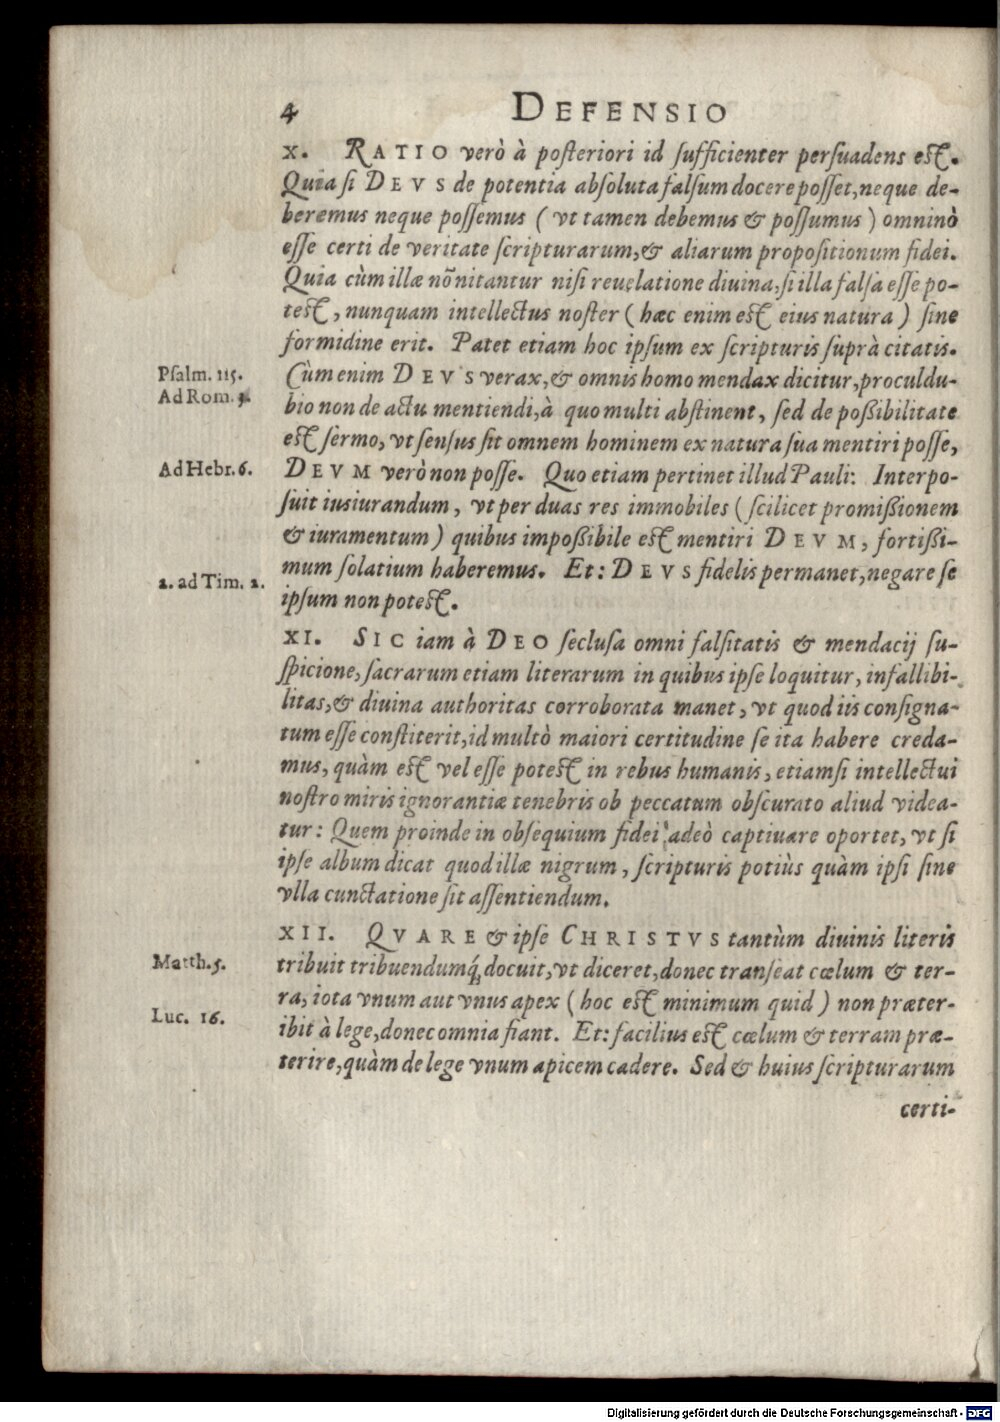 4 DEFENSIO
X. RATIO verò à posteriori id sufficienter persuadens est.
Quia si DEVS de potentia absoluta falsum docere posset, neque de-
beremus neque possemus (vt tamen debemus & possumus) omninò
esse certi de veritate scripturarum, & aliarum propositionum fidei.
Quia cùm illæ nõ nitantur nisi reuelatione diuina, si illa falsa esse po-
test, nunquam intellectus noster (hæc enim est eius natura) sine
formidine erit. Patet etiam hoc ipsum ex scripturis suprà citatis.
Psalm. 115.
Cùm enim DEVS verax, & omnis homo mendax dicitur, proculdu-
Ad Rom. 3.
bio non de actu mentiendi, à quo multi abstinent, sed de poßibilitate
est sermo, vt sensus sit omnem hominem ex natura sua mentiri posse,
Ad Hebr. 6.
DEVM verò non posse. Quo etiam pertinet illud Pauli: Interpo-
suit iusiurandum, vt per duas res immobiles (scilicet promißionem
& iuramentum) quibus impoßibile est mentiri DEVM, fortißi-
mum solatium haberemus. Et: DEVS fidelis permanet, negare se
2. ad Tim. 2.
ipsum non potest.
XI. SIC iam à DEO seclusa omni falsitatis & mendacij su-
spicione, sacrarum etiam literarum in quibus ipse loquitur, infallibi-
litas, & diuina authoritas corroborata manet, vt quod iis consigna-
tum esse constiterit, id multò maiori certitudine se ita habere creda-
mus, quàm est vel esse potest in rebus humanis, etiamsi intellectui
nostro miris ignorantiæ tenebris ob peccatum obscurato aliud videa-
tur: Quem proinde in obsequium fidei adeò captiuare oportet, vt si
ipse album dicat quod illæ nigrum, scripturis potiùs quàm ipsi sine
vlla cunctatione sit assentiendum.
XII. QVARE & ipse CHRISTVS tantùm diuinis literis
Matth. 5.
tribuit tribuendumq́; docuit, vt diceret, donec transeat cœlum & ter-
ra, iota vnum aut vnus apex (hoc est minimum quid) non præter-
Luc. 16.
ibit à lege, donec omnia fiant. Et: facilius est cœlum & terram præ-
terire, quàm de lege vnum apicem cadere. Sed & huius scripturarum
certi-
Digitalisierung gefördert durch die Deutsche Forschungsgemeinschaft - DFG